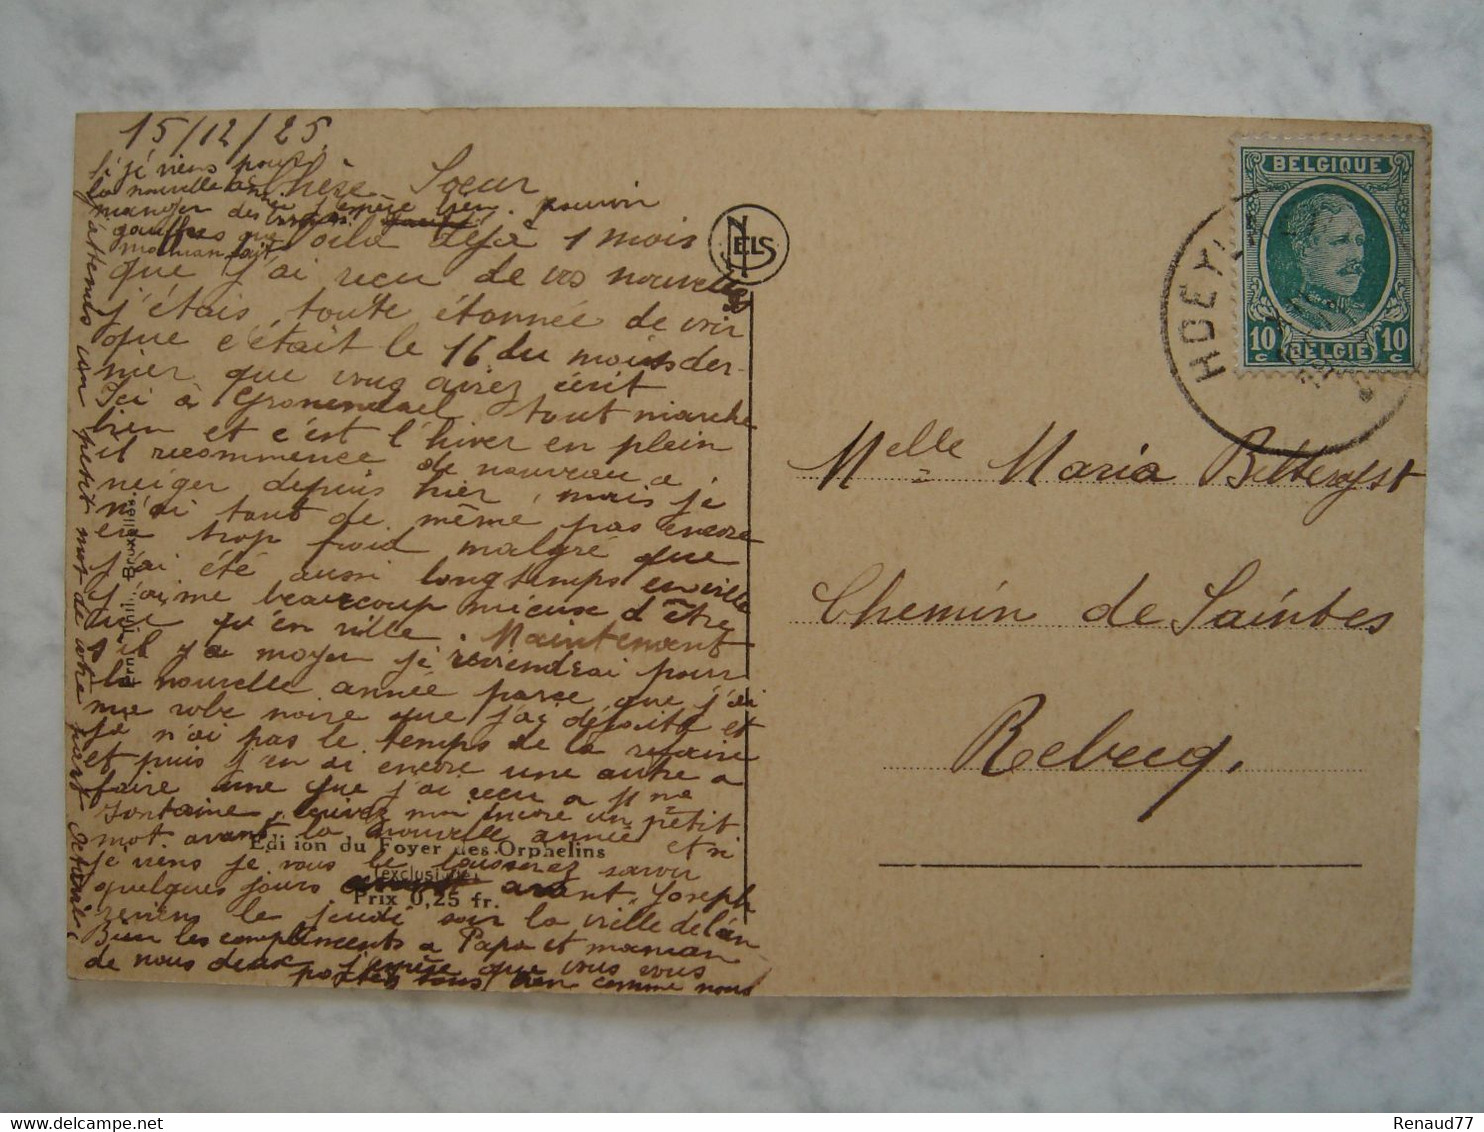 15/12/25
Si je viens pour
la nouvelle année
manger des
gauffres que
maman fait
j'espère bien pouvoir
Chère Soeur
Voila déjà 1 mois
que j'ai reçu de vos nouvelles
j'étais toute étonnée de voir
que c'était le 16 du mois der-
nier que vous aviez écrit
Ici à Gronendael tout marche
bien et c'est l'hiver en plein
il recommence de nouveau a
neiger depuis hier, mais je
n'ai tout de même pas encore
eu trop froid malgré que
j'ai été aussi longtemps en ville
j'aime beaucoup mieux d'être
ici qu'en ville. Maintenant
s'il y a moyen je reviendrai pour
la nouvelle année parce que j'ai
ma robe noire que j'ai défaite et
je n'ai pas le temps de la refaire
et puis j'en ai encore une autre a
faire une que j'ai reçu a Mme
Fontaine, écrivez moi encore un petit
mot avant la nouvelle année et si
je viens je vous le laisserez savoir
quelques jours avant. Joseph
reviens le jeudi soir la veille de l'an
Bien les compliments a Papa et maman
de nous deux j'espère que vous vous
portez tous bien comme nous
j'attends un petit mot de votre part
NELS
Bruxelles.
Edition du Foyer des Orphelins
(exclusive)
Prix 0,25 fr.
BELGIQUE
10 c
BELGIE
10 c
HOEYL
Melle Maria Betteryst
Chemin de Saintes
Rebecq.
Renaud77